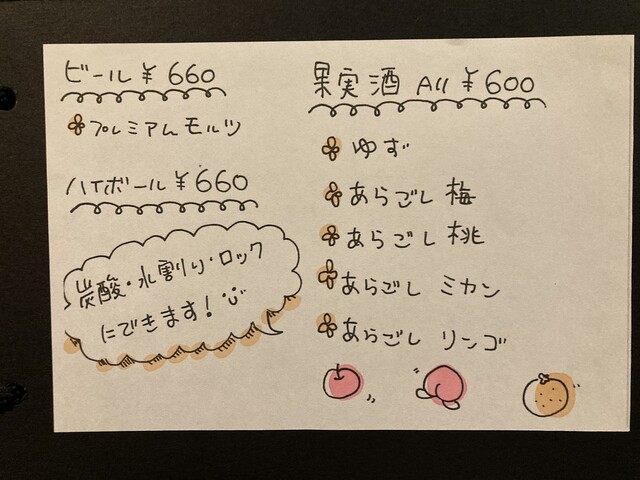 ビール ¥660
プレミアムモルツ
ハイボール ¥660
炭酸・水割り・ロック
にできます!
果実酒 All ¥600
ゆず
あらごし 梅
あらごし 桃
あらごし ミカン
あらごし リンゴ